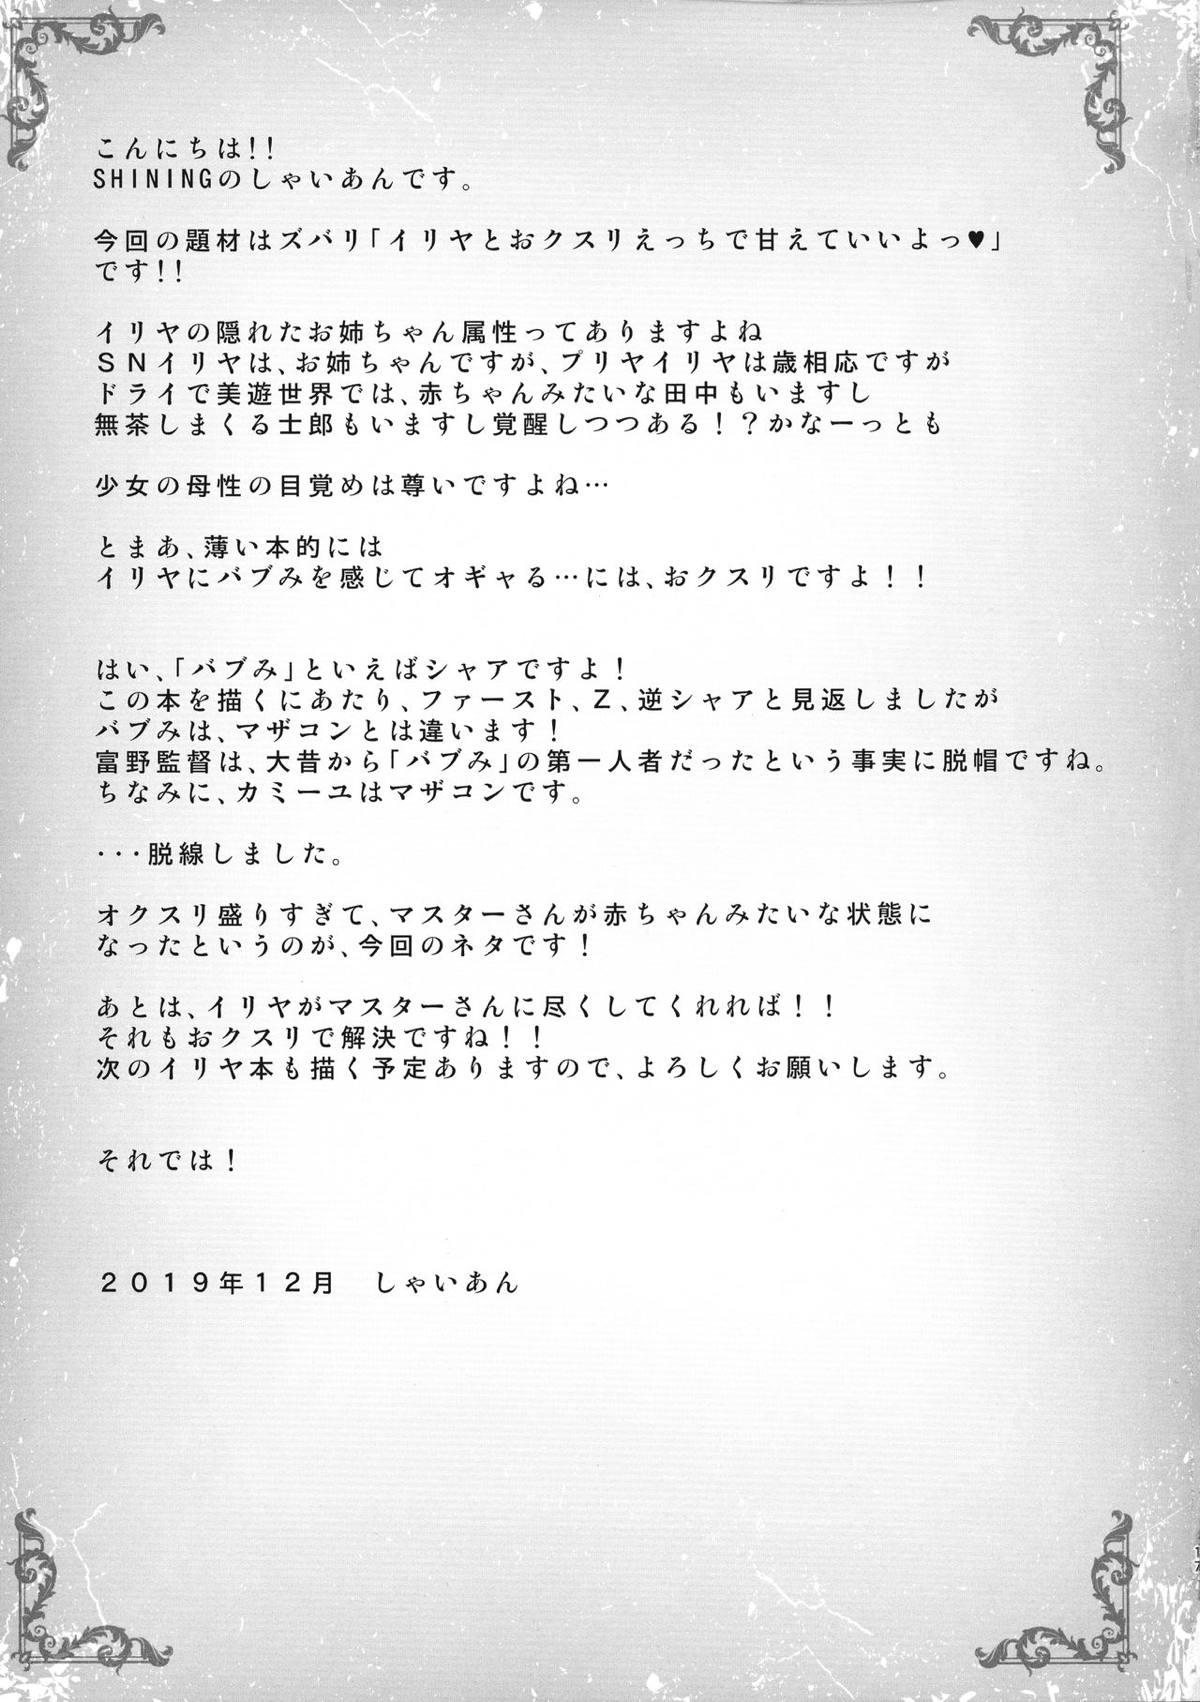 こんにちは!!
SHININGのしゃいあんです。
今回の題材はズバリ「イリヤとおクスリえっちで甘えていいよっ♥」
です!!
イリヤの隠れたお姉ちゃん属性ってありますよね
ＳＮイリヤは、お姉ちゃんですが、プリヤイリヤは歳相応ですが
ドライで美遊世界では、赤ちゃんみたいな田中もいますし
無茶しまくる士郎もいますし覚醒しつつある！？かなーっとも
少女の母性の目覚めは尊いですよね…
とまあ、薄い本的には
イリヤにバブみを感じてオギャる…には、おクスリですよ！！
はい、「バブみ」といえばシャアですよ！
この本を描くにあたり、ファースト、Ｚ、逆シャアと見返しましたが
バブみは、マザコンとは違います！
富野監督は、大昔から「バブみ」の第一人者だったという事実に脱帽ですね。
ちなみに、カミーユはマザコンです。
･･･脱線しました。
オクスリ盛りすぎて、マスターさんが赤ちゃんみたいな状態に
なったというのが、今回のネタです！
あとは、イリヤがマスターさんに尽くしてくれれば！！
それもおクスリで解決ですね！！
次のイリヤ本も描く予定ありますので、よろしくお願いします。
それでは！
２０１９年１２月　しゃいあん